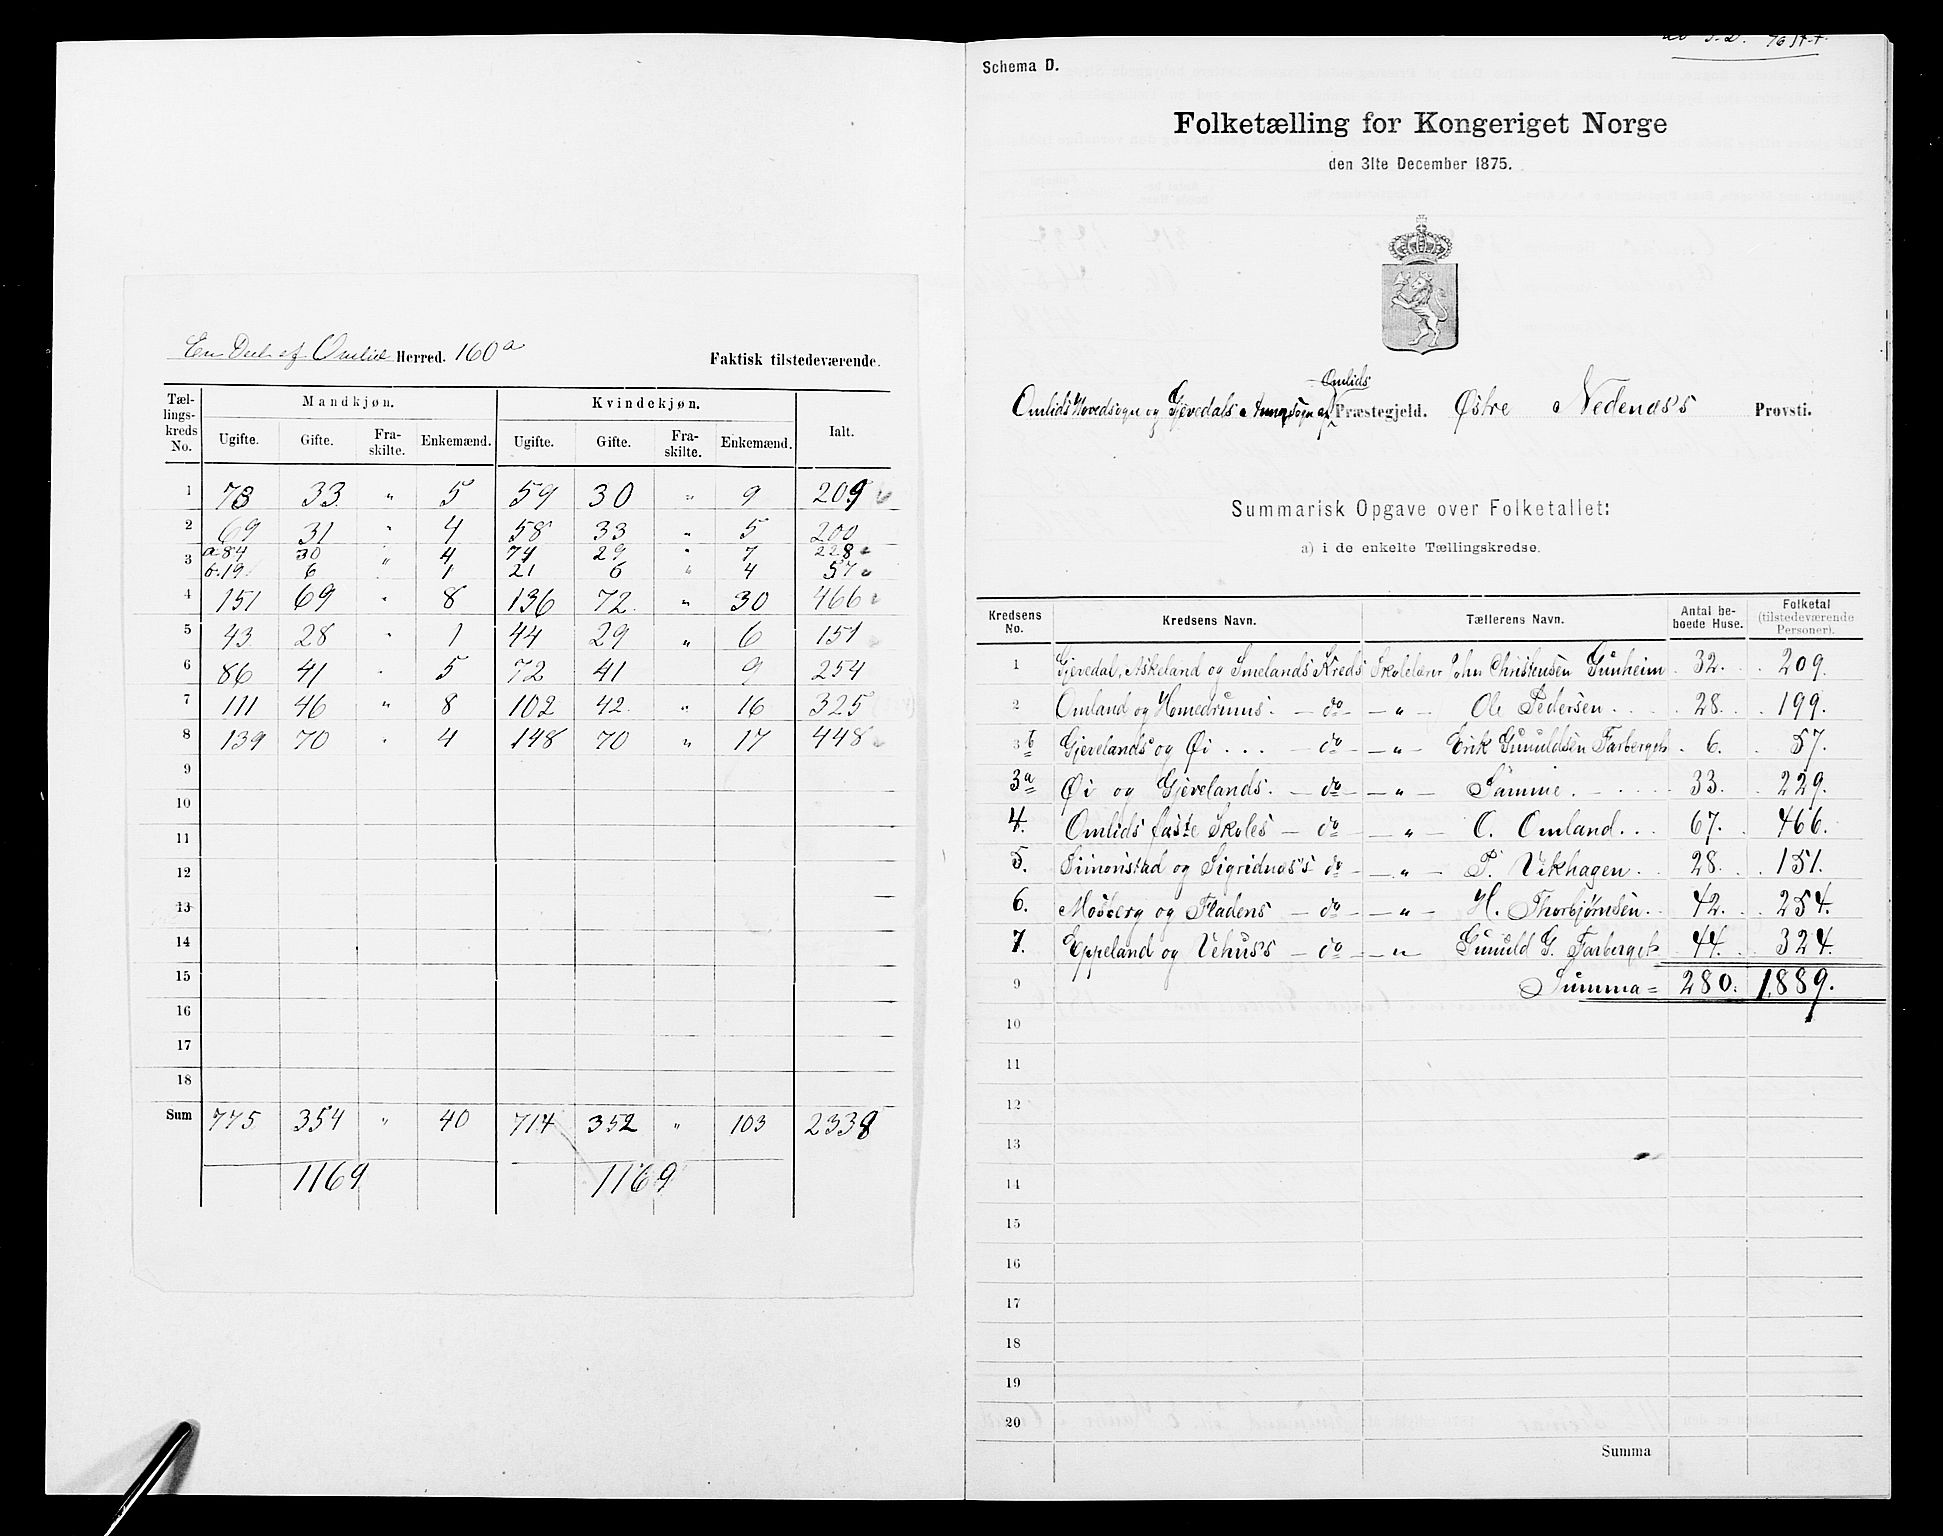 En Deel af Omlid Herred. 160a Faktisk tilstedeværende.
Tæl-lings-kreds No. Mandkjøn. Kvindekjøn. Ialt.
Ugifte. Gifte. Fra-skilte. Enkemænd. Ugifte. Gifte. Fra-skilte. Enkemænd.
1 73 33 " 5 59 30 " 9 209
2 69 31 " 4 58 33 " 5 200
3 a. 84 30 " 4 74 29 " 7 228
b. 19 6 1 21 6 " 4 57
4 151 69 " 8 136 72 " 30 466
5 43 28 " 1 44 29 " 6 151
6 86 41 " 5 72 41 9 254
7 111 46 " 8 102 42 " 16 325
8 139 70 " 4 148 70 " 17 448
9
10
11
12
13
14
15
16
17
18
Sum 775 354 " 40 714 352 " 103 2338
1169 1169
Schema D.
Folketælling for Kongeriget Norge
den 31te December 1875.
Omlids
Omlids Hovedsogn og Gjevedals Annexsogn af Præstegjeld. Østre Nedenæs's Provsti.
Summarisk Opgave over Folketallet:
a) i de enkelte Tællingskredse.
Kredsens No. Kredsens Navn. Tællerens Navn. Antal be-boede Huse. Folketal (tilstedeværende Personer).
1 Gjevedal, Askeland og Smelands Kreds Skolelærer John Christensen Gunheim 32. 209.
2 Omland og Homedrums. — do — " — Ole Pedersen 28. 199.
3 b Gjevelands og Øi . . . — do — " — Erik Gunuldsen Farberget 6. 57.
3 a Øi og Gjevelands. — do — " — Samme. 33. 229.
4. Omlids faste Skoles — do — " — O. Omland. 67. 466.
5. Simonstad og Sigridnæs's do — " — P. Vikhagen. 28. 151.
6. Mosberg og Fladens — do — " — H. Thorbjørnsen. 42. 254.
7. Eppeland og Vehus's — do — " — Gunuld G. Farberget 44. 324.
9 Summa = 280. 1,889.
10
11
12
13
14
15
16
17
18
19
20
Summa